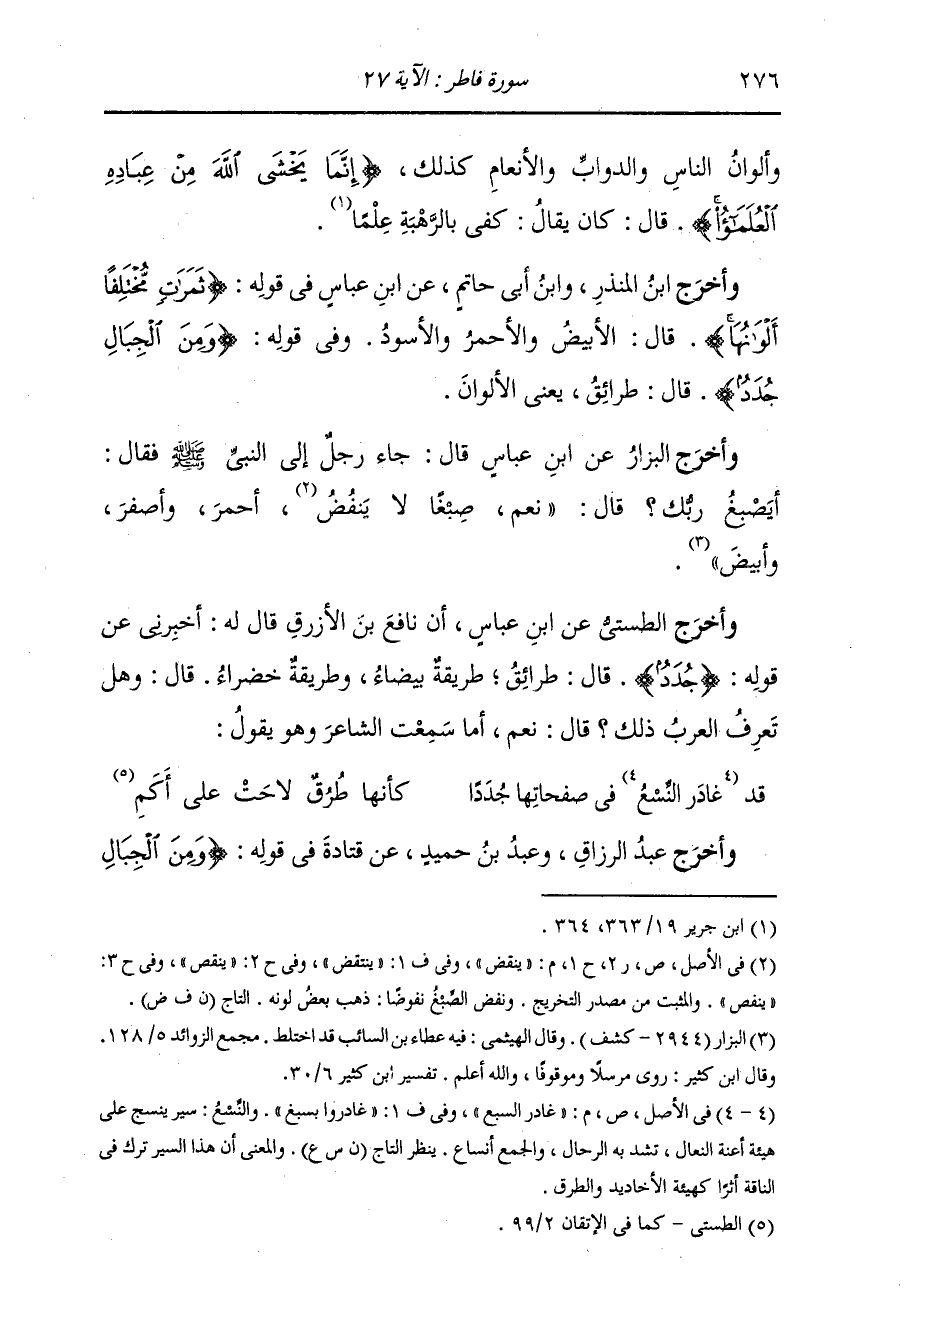 ٢٧٦
سورة فاطر : الآية ٢٧
وألوانُ الناسِ والدوابِّ والأنعامِ كذلك ، ﴿إِنَّمَا يَخْشَى ٱللَّهَ مِنْ عِبَادِهِ
ٱلْعُلَمَٰٓؤُا۟ۚ﴾ . قال : كان يقالُ : كفى بالرَّهْبَةِ عِلْمًا(١) .
وأخرَج ابنُ المنذرِ ، وابنُ أبى حاتمٍ ، عن ابنِ عباسٍ فى قولِه : ﴿ثَمَرَٰتٍ مُّخْتَلِفًا
أَلْوَٰنُهَاۚ﴾ . قال : الأبيضُ والأحمرُ والأسودُ . وفى قولِه : ﴿وَمِنَ ٱلْجِبَالِ
جُدَدٌۢ﴾ . قال : طرائِقُ ، يعنى الألوانَ .
وأخرَج البزارُ عن ابنِ عباسٍ قال : جاء رجلٌ إلى النبىِّ ﷺ فقال :
أيَصْبِغُ ربُّك ؟ قال : « نعم ، صِبْغًا لا يَنفُضُ(٢) ، أحمرَ ، وأصفرَ ،
وأبيضَ»(٣) .
وأخرَج الطستىُّ عن ابنِ عباسٍ ، أن نافعَ بنَ الأزرقِ قال له : أخبِرنِى عن
قولِه : ﴿جُدَدٌۢ﴾ . قال : طرائِقُ ؛ طريقةٌ بيضاءُ ، وطريقةٌ خضراءُ . قال : وهل
تَعرِفُ العربُ ذلك ؟ قال : نعم ، أما سَمِعْت الشاعرَ وهو يقولُ :
قد (٤)غادَر النِّسْعُ(٤) فى صفحاتِها جُدَدًا كأنها طُرُقٌ لاحَتْ على أَكَمِ(٥)
وأخرَج عبدُ الرزاقِ ، وعبدُ بنُ حميدٍ ، عن قتادةَ فى قولِه : ﴿وَمِنَ ٱلْجِبَالِ
(١) ابن جرير ١٩/ ٣٦٣، ٣٦٤ .
(٢) فى الأصل ، ص ، ر ٢، ح ١، م : «ينقض» ، وفى ف ١: «ينتقض» ، وفى ح ٢: «ينقص» ، وفى ح ٣:
«ينفص» . والمثبت من مصدر التخريج . ونفض الصِّبْغُ نفوضًا : ذهب بعضُ لونه . التاج (ن ف ض) .
(٣) البزار (٢٩٤٤ - كشف) . وقال الهيثمى : فيه عطاء بن السائب قد اختلط . مجمع الزوائد ٥/ ١٢٨.
وقال ابن كثير : روى مرسلًا وموقوفًا ، والله أعلم . تفسير ابن كثير ٦/ ٣٠.
(٤ - ٤) فى الأصل ، ص ، م : «غادر السبع» ، وفى ف ١: «غادروا بسبغ» . والنِّسْعُ : سير ينسج على
هيئة أعنة النعال ، تشد به الرحال ، والجمع أنساع . ينظر التاج (ن س ع) . والمعنى أن هذا السير ترك فى
الناقة أثرًا كهيئة الأخاديد والطرق .
(٥) الطستى - كما فى الإتقان ٢/ ٩٩ .